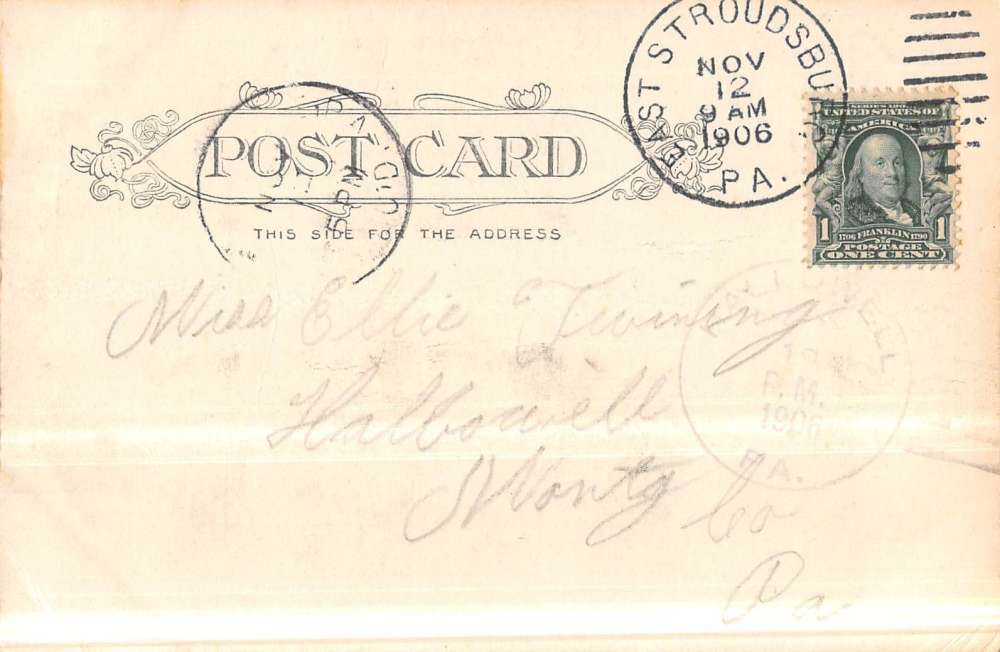 EAST STROUDSBURG
NOV
12
9 AM
1906
PA.
POST CARD
THIS SIDE FOR THE ADDRESS
5 PM
UNITED STATES OF
AMERICA
1 1706 FRANKLIN 1790 1
POSTAGE
ONE CENT
Miss Ellie Twining
Hallowell
Montg Co
Pa
HALLOWELL
12
P.M.
1906
PA.